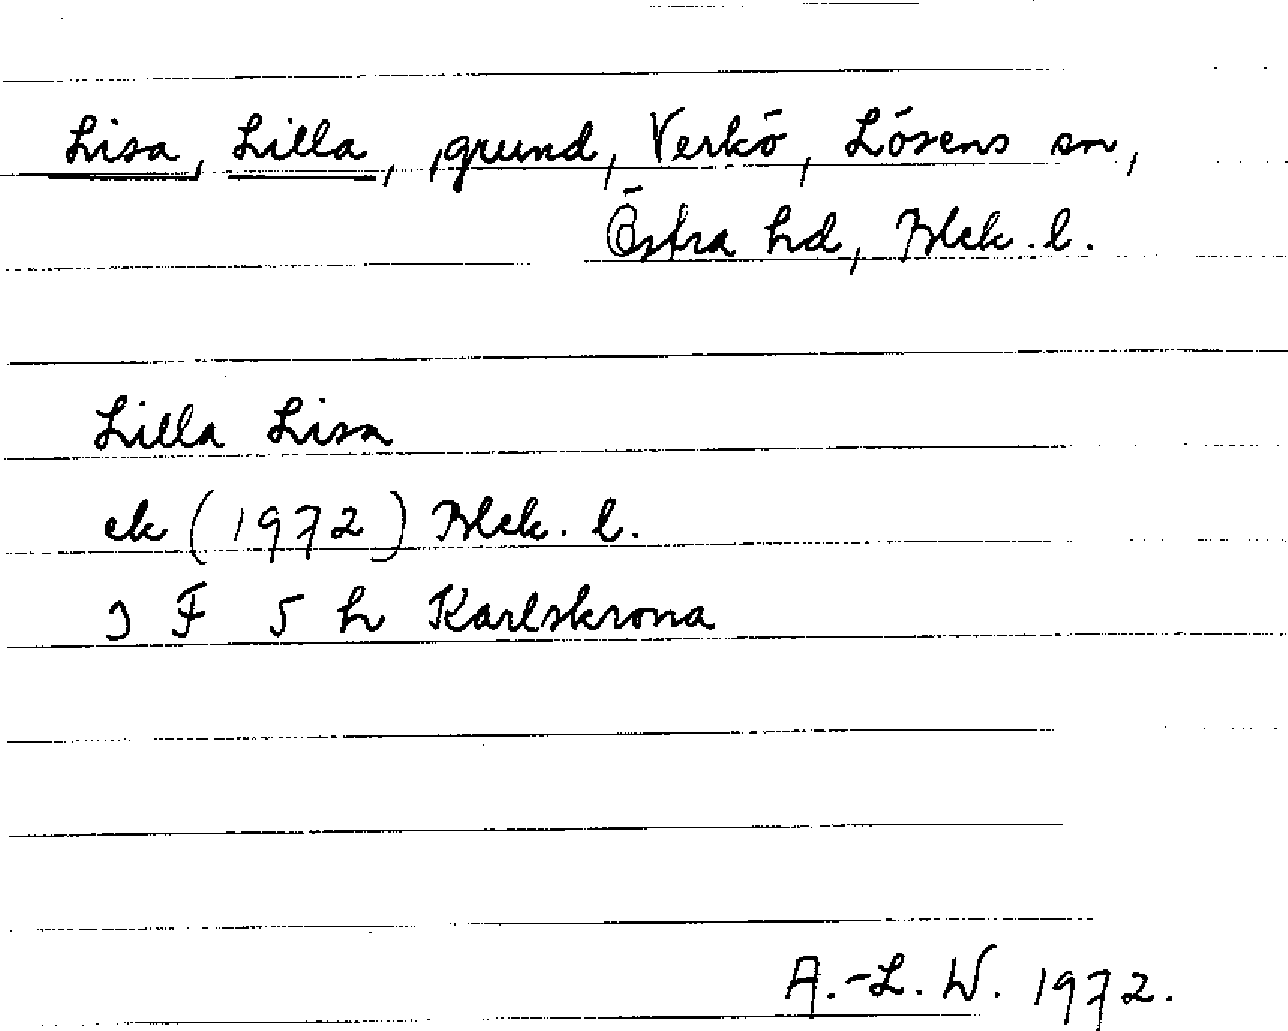 Lisa, Lilla, , grund, Verkö, Lösens sn,
Östra hd, Blek. l.
Lilla Lisa
ek (1972) Blek. l.
3 F 5 h Karlskrona
A.-L. W. 1972.